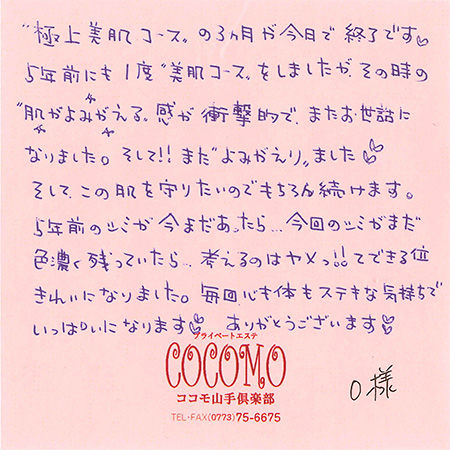 "極上美肌コース"の3ヵ月が今日で終了です♡
5年前にも1度"美肌コース"をしましたが、その時の
"肌がよみがえる"感が衝撃的で、またお世話に
なりました。そして!!また"よみがえり"ました♡
そして、この肌を守りたいのでもちろん続けます。
5年前のシミが今まだあったら…今回のシミがまだ
色濃く残っていたら…考えるのはヤメっ!!てできる位
きれいになりました。毎回心も体もステキな気持ちで
いっぱいになります♡ ありがとうございます♡
プライベートエステ
COCOMO
ココモ山手倶楽部
TEL・FAX(0773)75-6675
O様